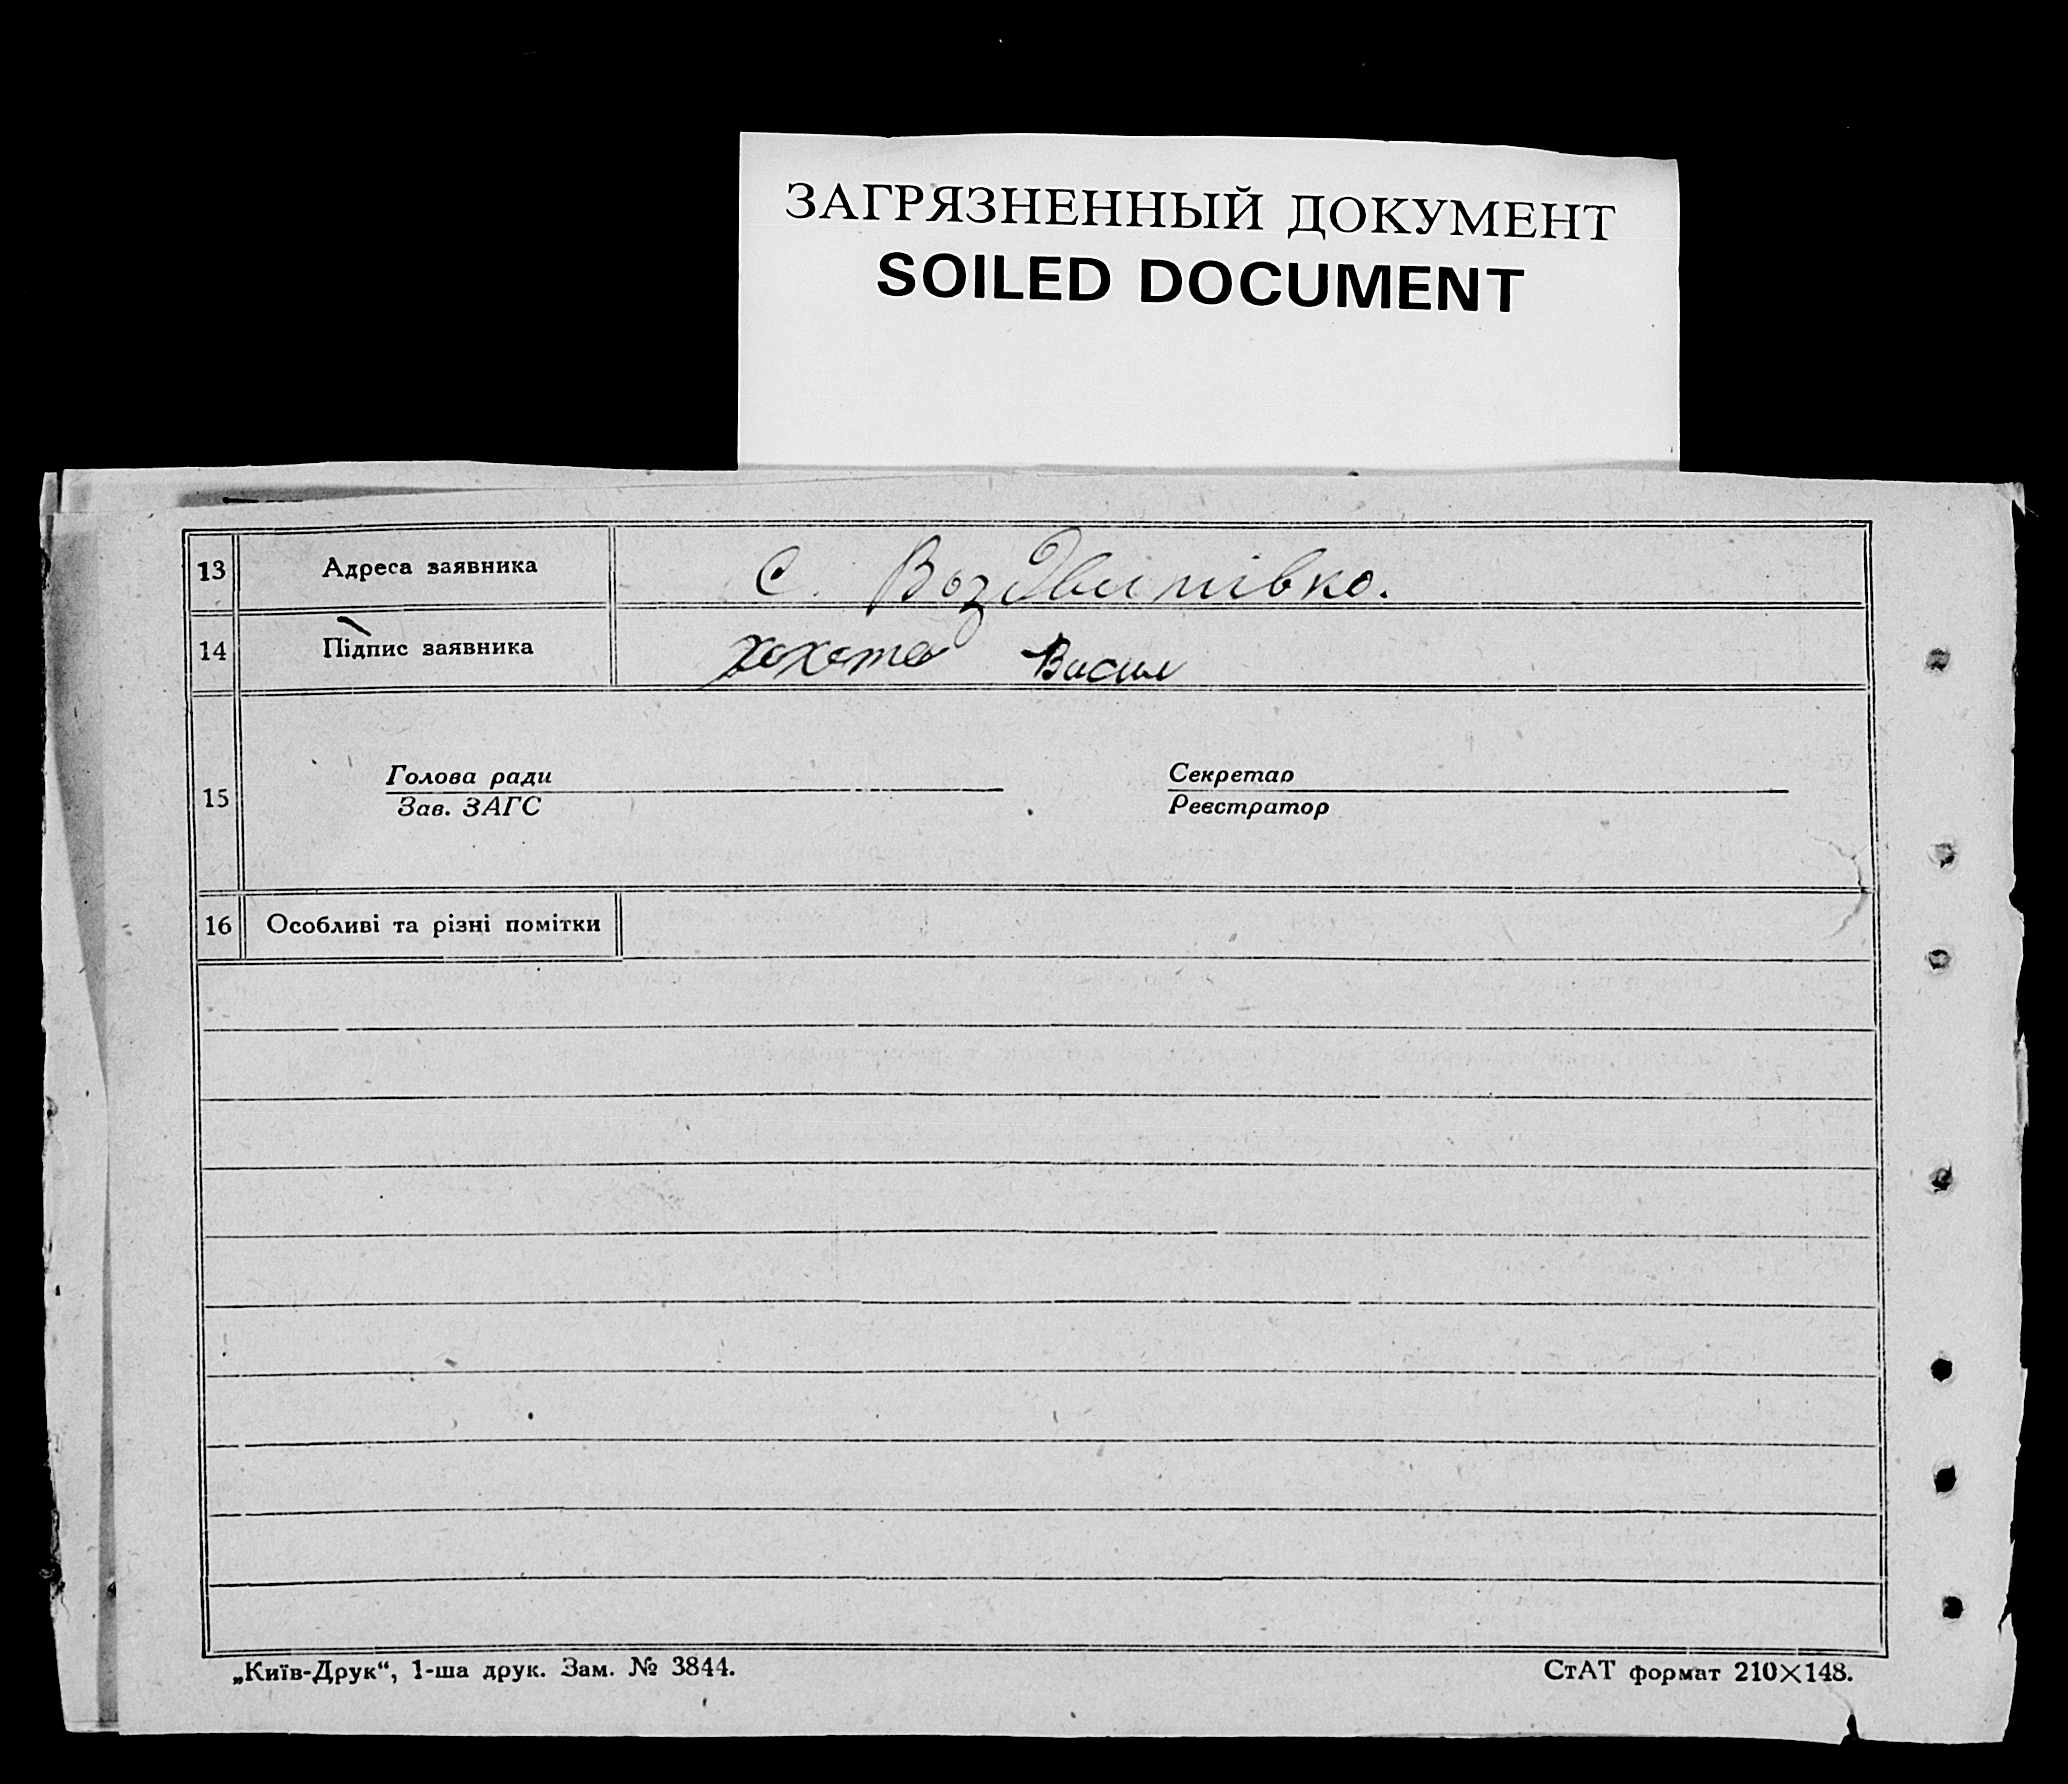 ЗАГРЯЗНЕННЫЙ ДОКУМЕНТ
SOILED DOCUMENT
13 Адреса заявника С. Воздвитівка.
14 Підпис заявника Хохота Васил
15 Голова ради Секретар
Зав. ЗАГС Реєстратор
16 Особливі та різні помітки
„Київ-Друк“, 1-ша друк. Зам. № 3844.
СтАТ формат 210×148.